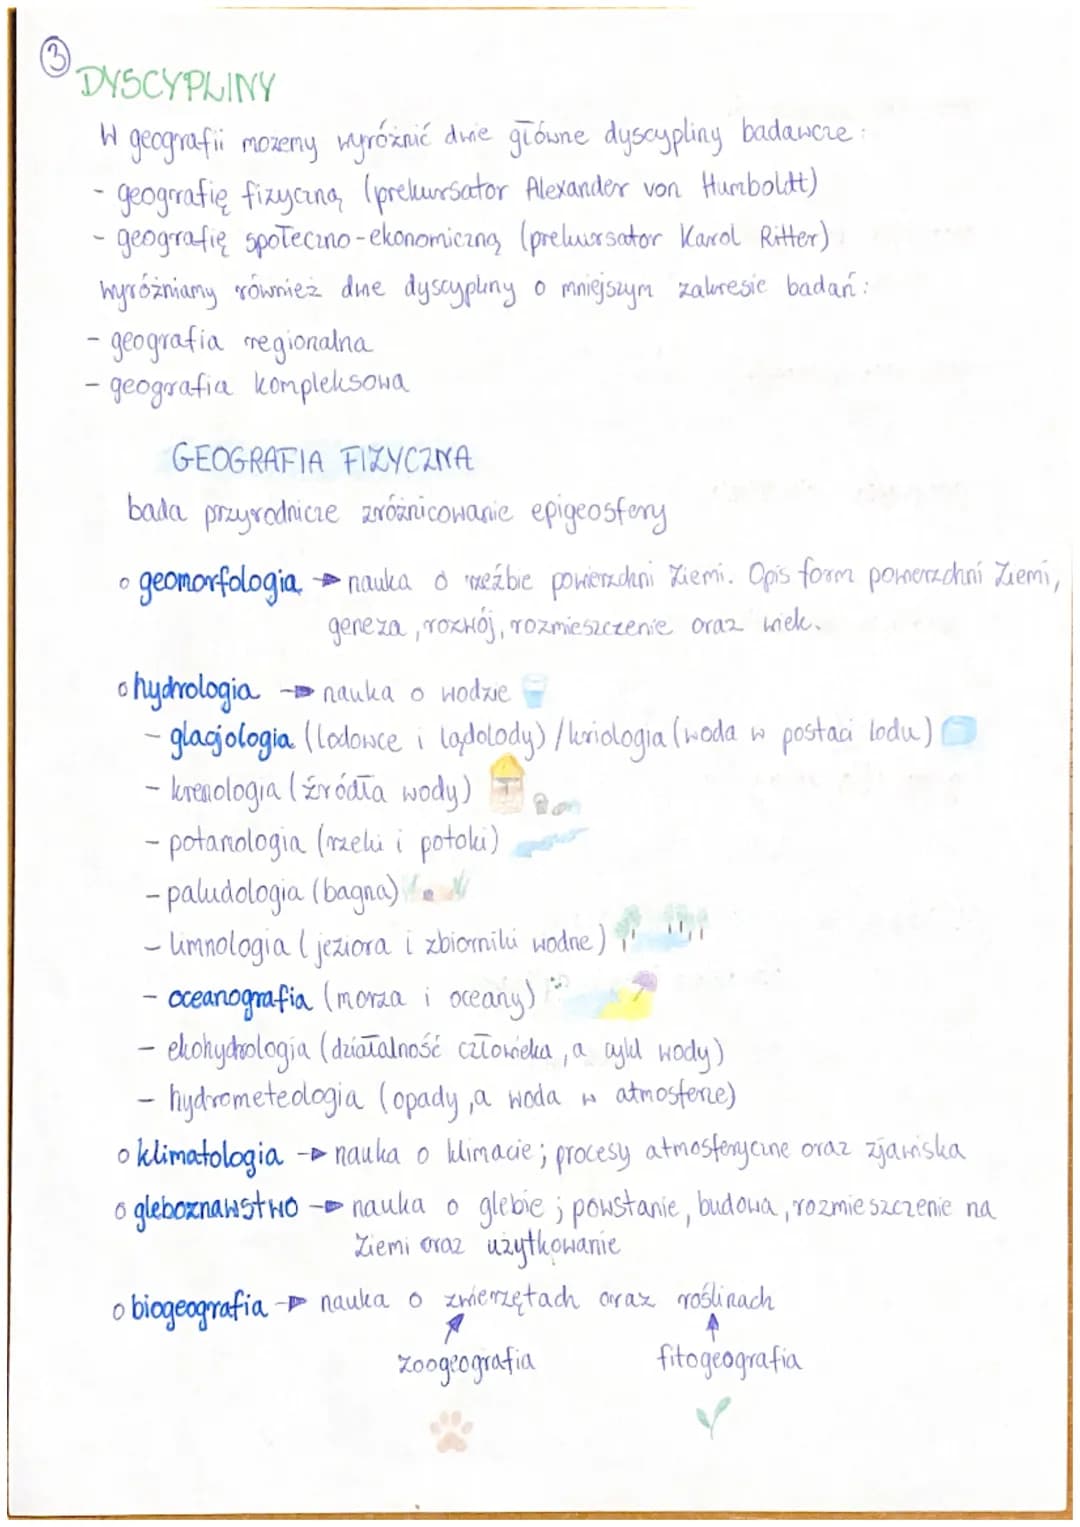 3
DYSCYPLINY
W geografii możemy wyróżnić dwie główne dyscypliny badawcze:
- geografię fizyczną (prekursator Alexander von Humboldt)
- geografię społeczno-ekonomiczną (prekursator Karol Ritter)
wyróżniamy również dwie dyscypliny o mniejszym zakresie badań:
- geografia regionalna
- geografia kompleksowa
GEOGRAFIA FIZYCZNA
bada przyrodnicze zróżnicowanie epigeosfery
o geomorfologia → nauka o rzeźbie powierzchni Ziemi. Opis form powierzchni Ziemi,
geneza, rozwój, rozmieszczenie oraz wiek.
o hydrologia → nauka o wodzie
- glacjologia (lodowce i lądolody) / kriologia (woda w postaci lodu)
- krenologia (źródła wody)
- potamologia (rzeki i potoki)
- paludologia (bagna)
- limnologia (jeziora i zbiorniki wodne)
- oceanografia (morza i oceany)
- ekohydrologia (działalność człowieka, a cykl wody)
- hydrometeologia (opady, a woda w atmosferze)
o klimatologia → nauka o klimacie; procesy atmosferyczne oraz zjawiska
o gleboznawstwo → nauka o glebie; powstanie, budowa, rozmieszczenie na
Ziemi oraz użytkowanie
o biogeografia → nauka o zwierzętach oraz roślinach
zoogeografia fitogeografia